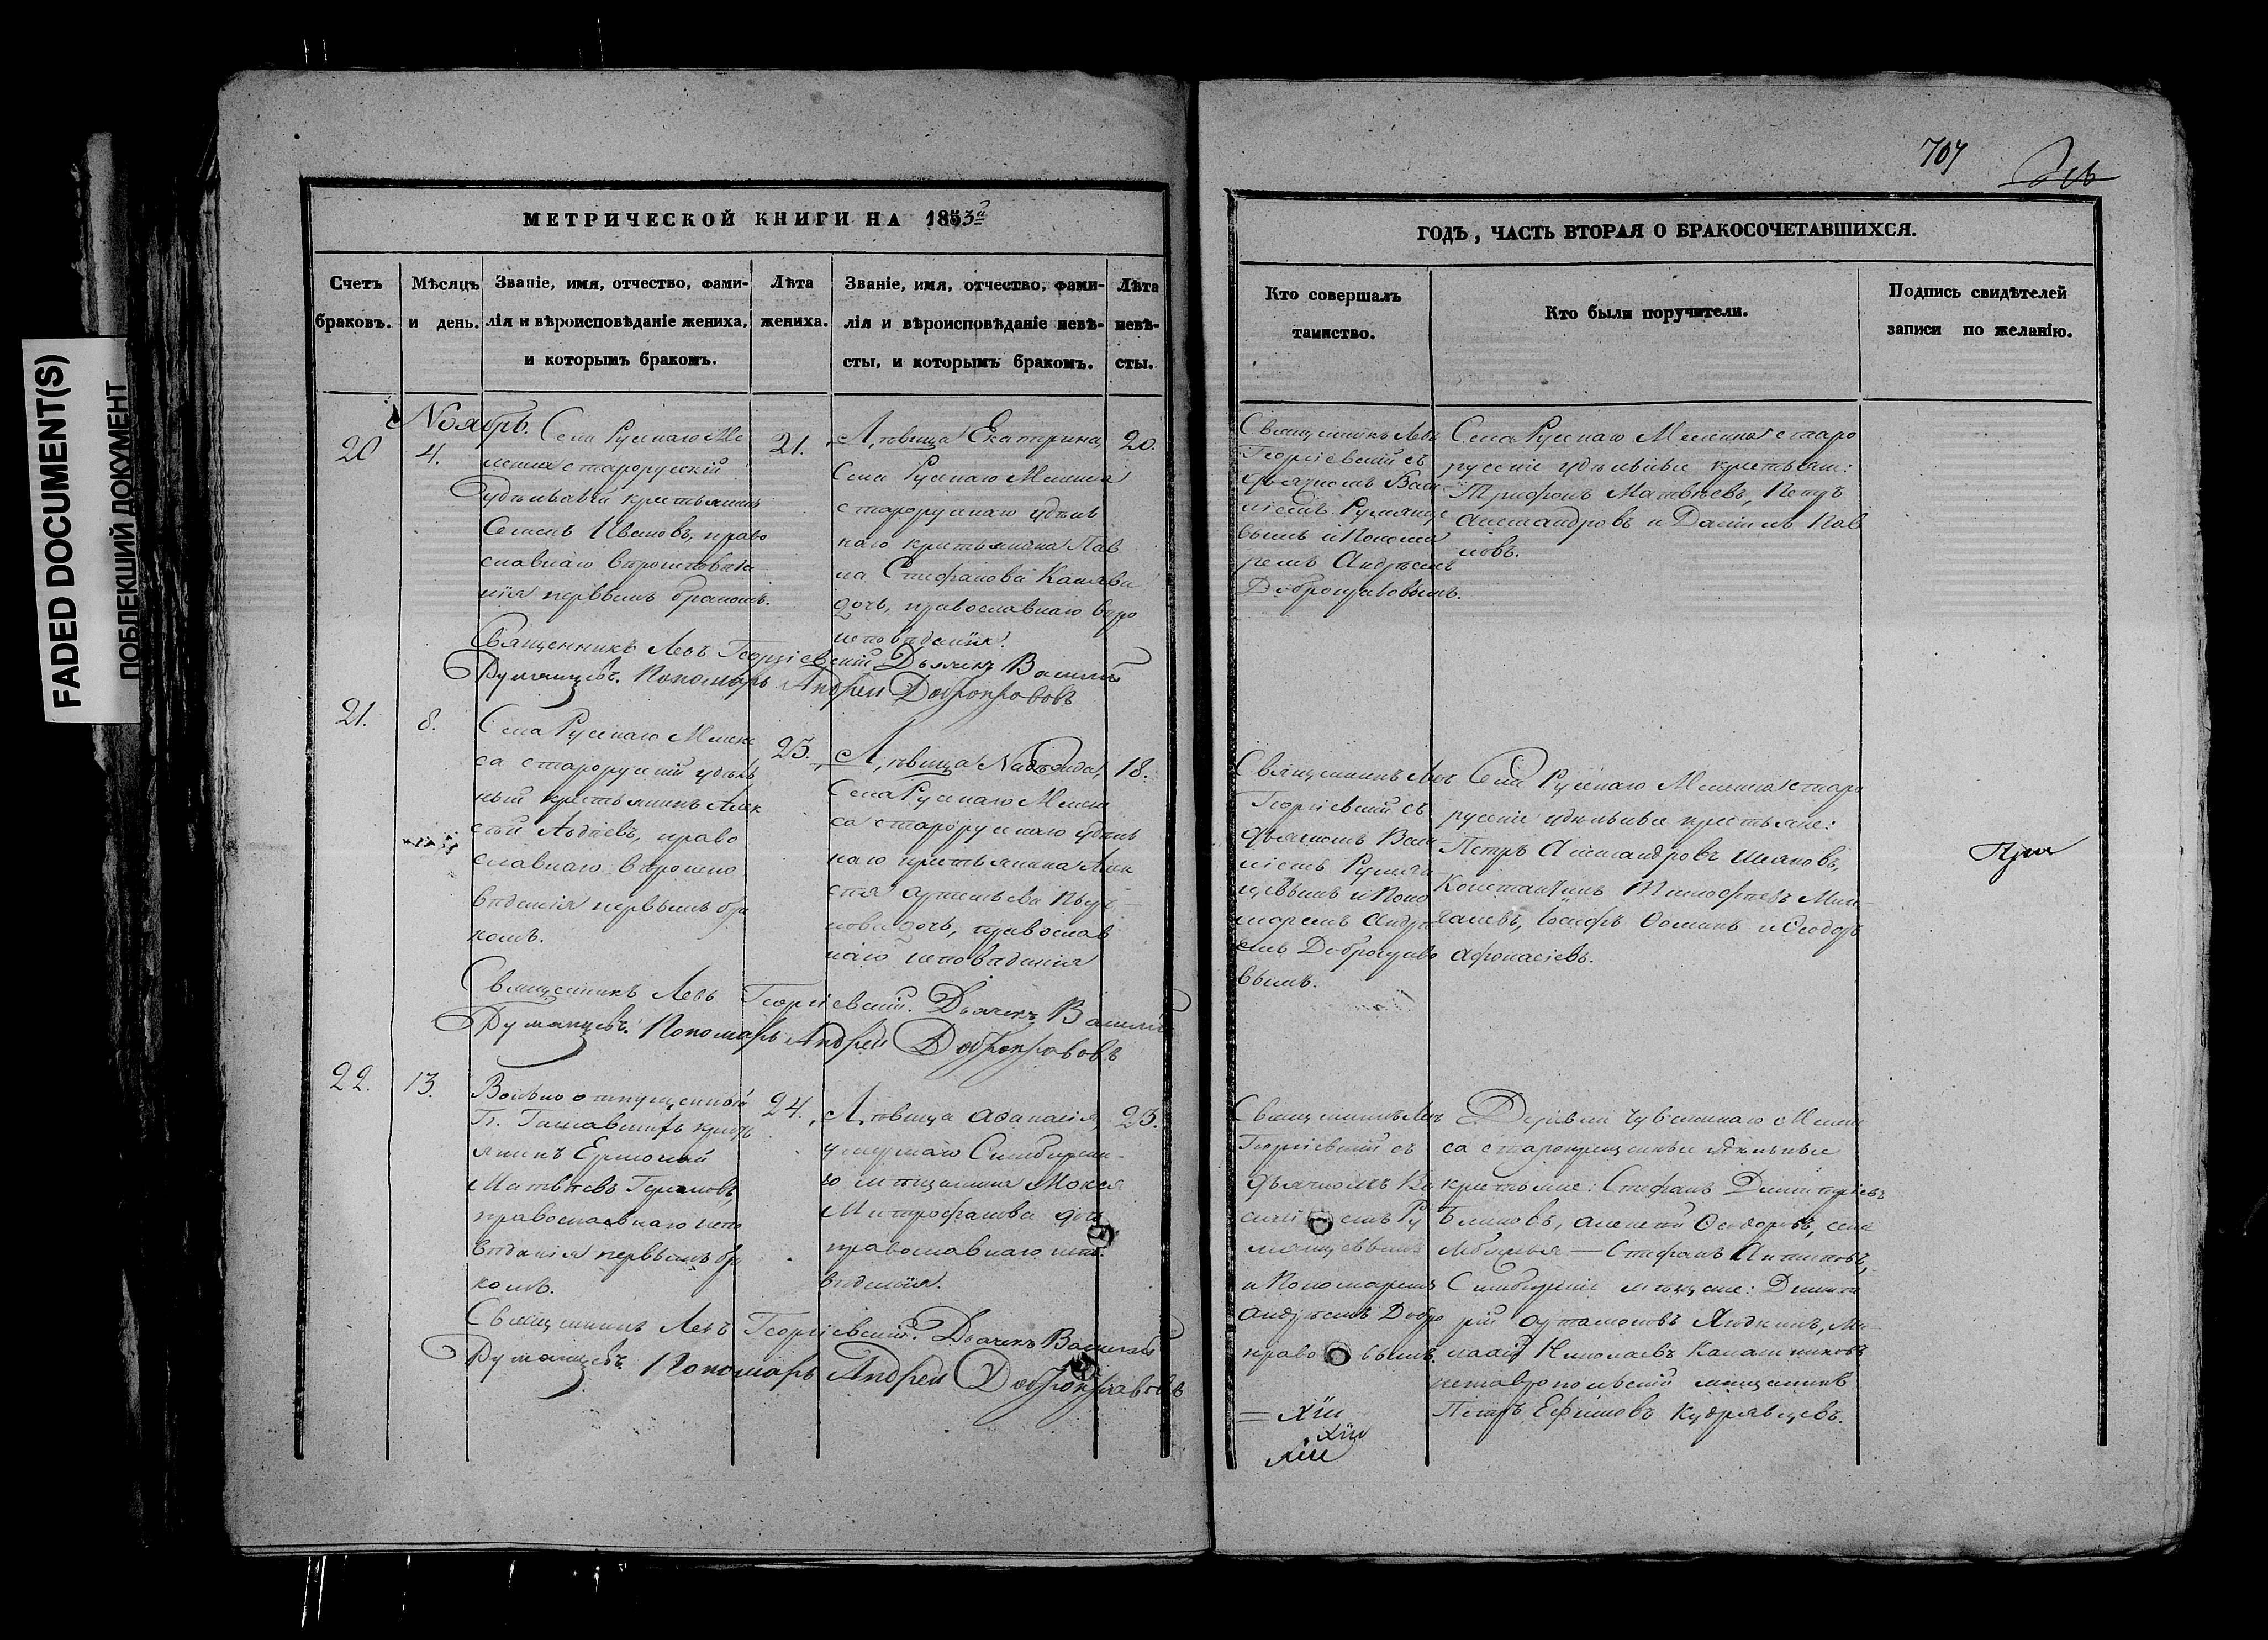 FADED DOCUMENT(S)
ПОБЛЕКШИЙ ДОКУМЕНТ
МЕТРИЧЕСКОЙ КНИГИ НА 1853й
Счетъ браковъ.
Мѣсяцъ и день.
Званіе, имя, отчество, фами-
лія и вѣроисповѣданіе жениха,
и которымъ бракомъ.
Лѣта жениха.
Званіе, имя, отчество, фами-
лія и вѣроисповѣданіе невѣ-
сты, и которымъ бракомъ.
Лѣта невѣ-
сты.
20
Ноябрь.
4.
Села Русскаго Ме
лекеса старорусскій
удѣльный крестьянинъ
Семенъ Ивановъ, право
славнаго вѣроисповѣда
нія первымъ бракомъ.
21.
Дѣвица Екатерина,
Села Русскаго Мелекеса
старорусскаго удѣль
наго крестьянина Пав
ла Стефанова
дочь, православнаго вѣро
исповѣданія.
20.
Священникъ Левъ Георгіевскій Дьячекъ Василій
Румянцевъ. Пономарь Андрей Добронравовъ
21.
8.
Села Русскаго Мелеке
са старорусскій удѣль
ный крестьянинъ Алек
сѣй Авдѣевъ, право
славнаго вѣроиспо
вѣданія первымъ бра
комъ.
23.
Дѣвица Надежда,
Села Русскаго Мелеке
са старорусскаго удѣль
наго крестьянина Алек
сѣя Артемьева
дочь, православ
наго исповѣданія
18.
Священникъ Левъ Георгіевскій. Дьячекъ Василій
Румянцевъ. Пономарь Андрей Добронравовъ
22.
13.
Вольноотпущенный
Г. крестъ
янинъ Ермолай
Матвѣевъ
православнаго испо
вѣданія первымъ бра
комъ.
24.
Дѣвица Аѳанасія,
умершаго Симбирска
го мѣщанина Мокея
Митрофанова дочь
православнаго испо
вѣданія.
23.
Священникъ Левъ Георгіевскій. Дьячекъ Василій
Румянцевъ. Пономарь Андрей Добронравовъ
707
ГОДЪ, ЧАСТЬ ВТОРАЯ О БРАКОСОЧЕТАВШИХСЯ.
Кто совершалъ
таинство.
Кто были поручители.
Подпись свидѣтелей
записи по желанію.
Священникъ Левъ
Георгіевскій съ
дьячкомъ Васи
ліемъ Румянце
вымъ и Понома
ремъ Андреемъ
Добронравовымъ.
Села Русскаго Мелекеса старо
русскіе удѣльные крестьяне:
Трифонъ Матвѣевъ, Петръ
Александровъ и Даніилъ Пав
ловъ.
Священникъ Левъ
Георгіевскій съ
дьячкомъ Васи
ліемъ Румян
цевымъ и Поно
маремъ Андре
емъ Добронраво
вымъ.
Села Русскаго Мелекеса старо
русскіе удѣльные крестьяне:
Петръ Александровъ
Константинъ Тимофѣевъ
Іосифъ Ѳоминъ и Ѳеодоръ
Афонасіевъ.
Священникъ Левъ
Георгіевскій съ
дьячкомъ Ва
силіемъ Ру
мянцевымъ
и Пономаремъ
Андреемъ Добро
нравовымъ.
Деревни Чувашскаго Мелеке
са старокрещенные удѣльные
крестьяне: Стефанъ Димитріевъ
Блиновъ, Алексѣй Ѳеодоровъ,
Стефанъ Антиповъ,
Симбирскіе мѣщане: Димит
рій Артамоновъ
Николаевъ Калашниковъ
Ставропольскій мѣщанинъ
Петръ Ефимовъ Кудрявцевъ.